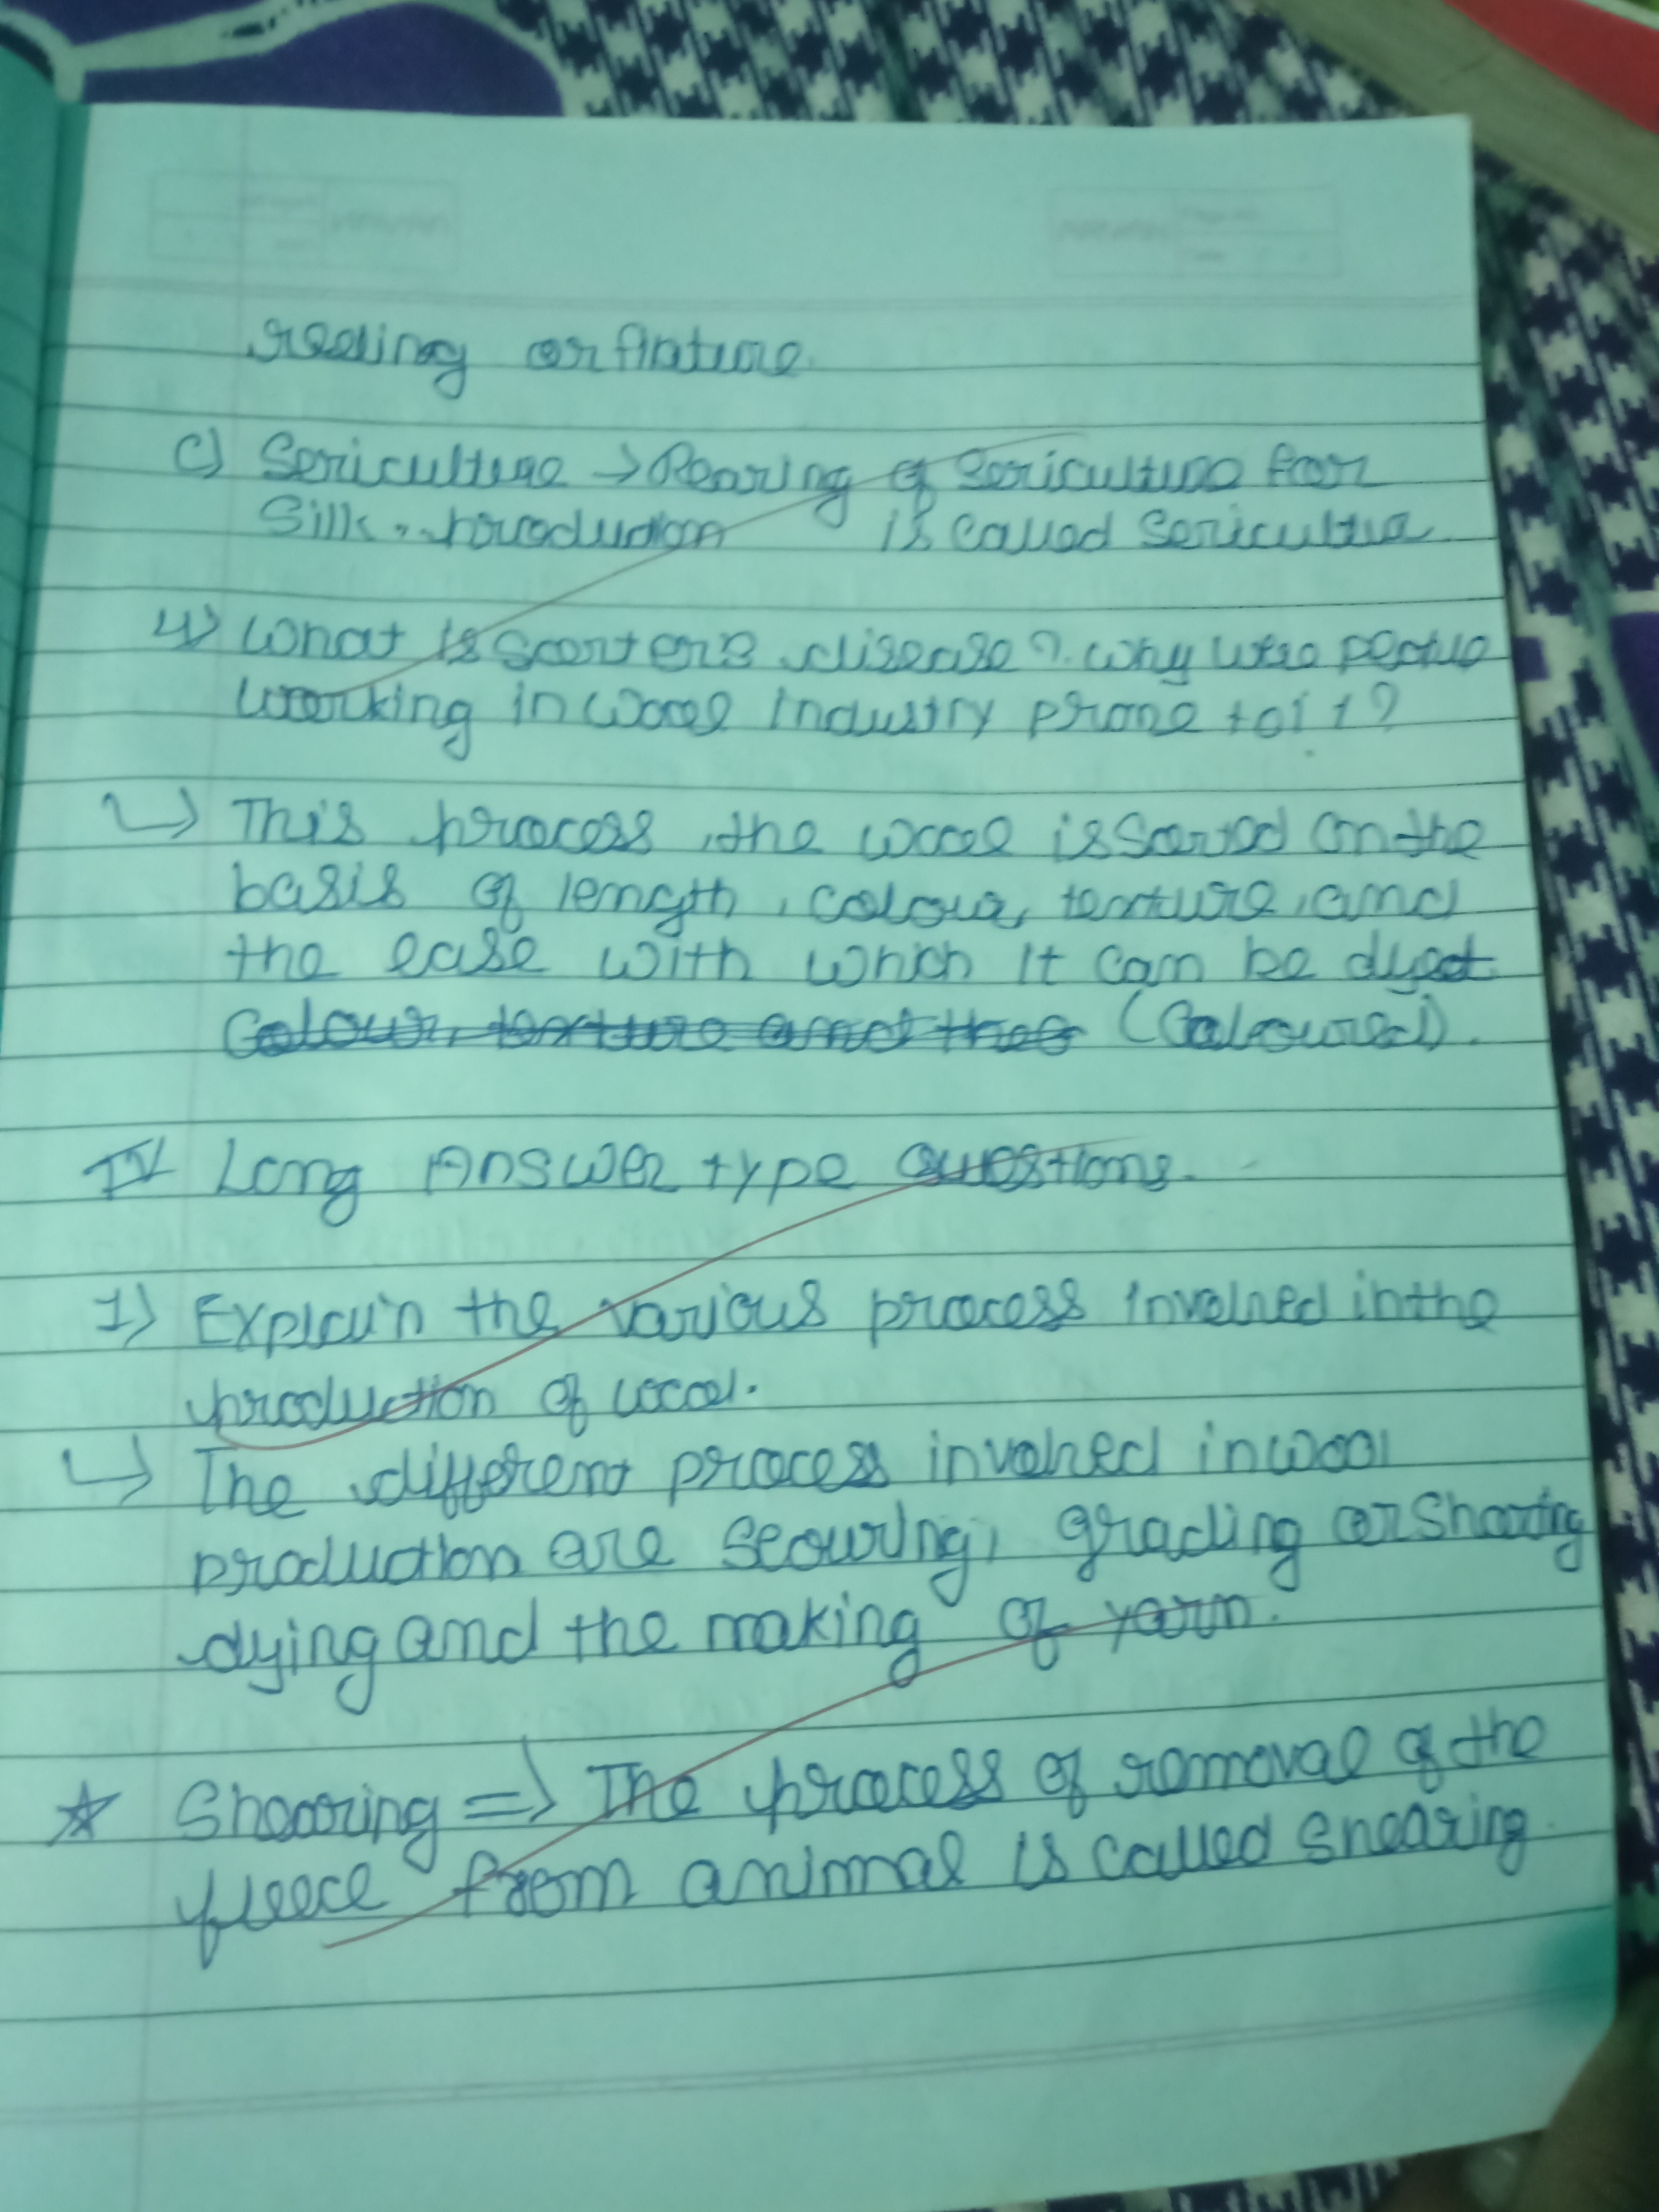 reeling or
c) Sericulture → Rearing of Sericulture for
Silk production is called Sericulture
4) What is sorter's disease? why were people
working in wool industry prone to it?
↳ This process, the wool is Sorted on the
basis of length, colour, texture, and
the ease with which it can be dyed
Colour, texture and the (Coloured).
IV Long Answer type Questions.
1) Explain the various process involved in the
production of wool.
↳ The different process involved in wool
production are scouring, grading or Shearing
dying and the making of yarn.
☆ Shearing => The process of removal of the
fleece from animal is called shearing.